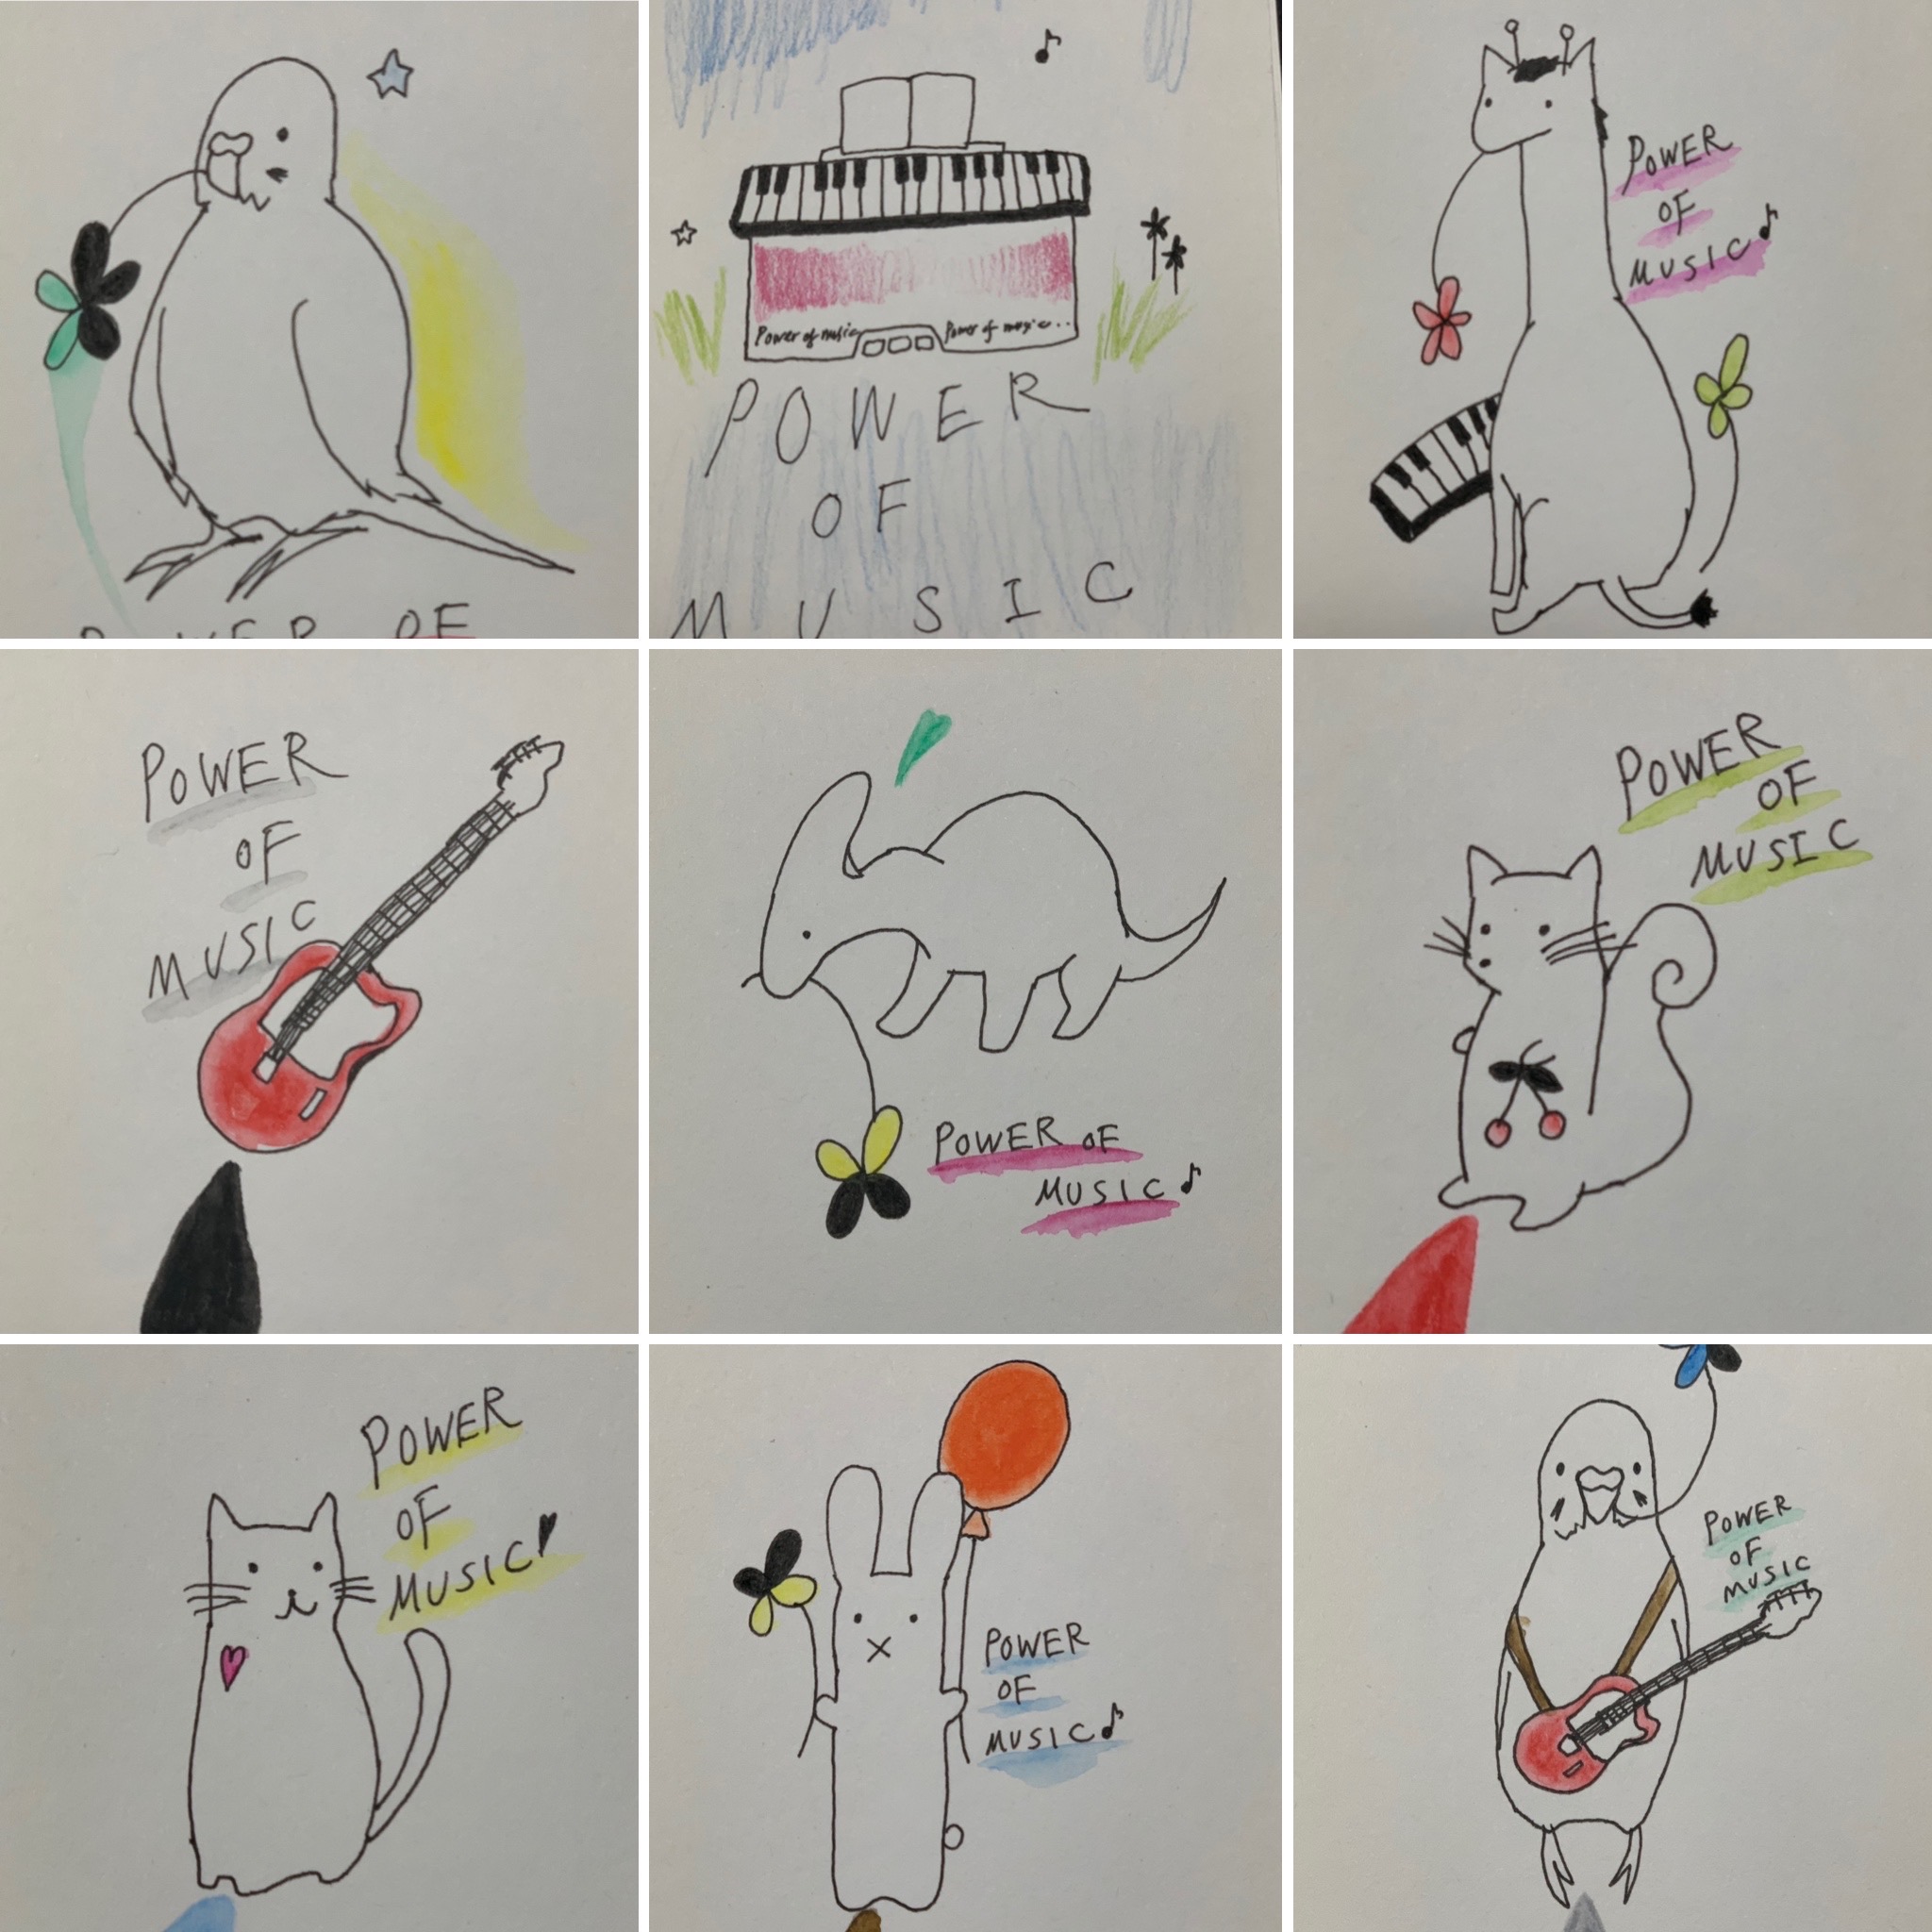 POWER OF
Power of music Power of music..
POWER
OF
MUSIC
POWER
OF
MUSIC
POWER
OF
MUSIC
POWER OF
MUSIC
POWER
OF
MUSIC
POWER
OF
MUSIC
POWER
OF
MUSIC
POWER
OF
MUSIC